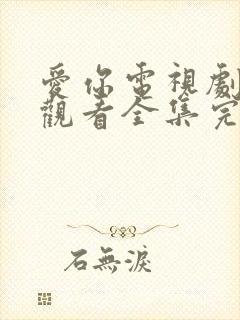 愛你電視劇
觀看全集完
石無淚